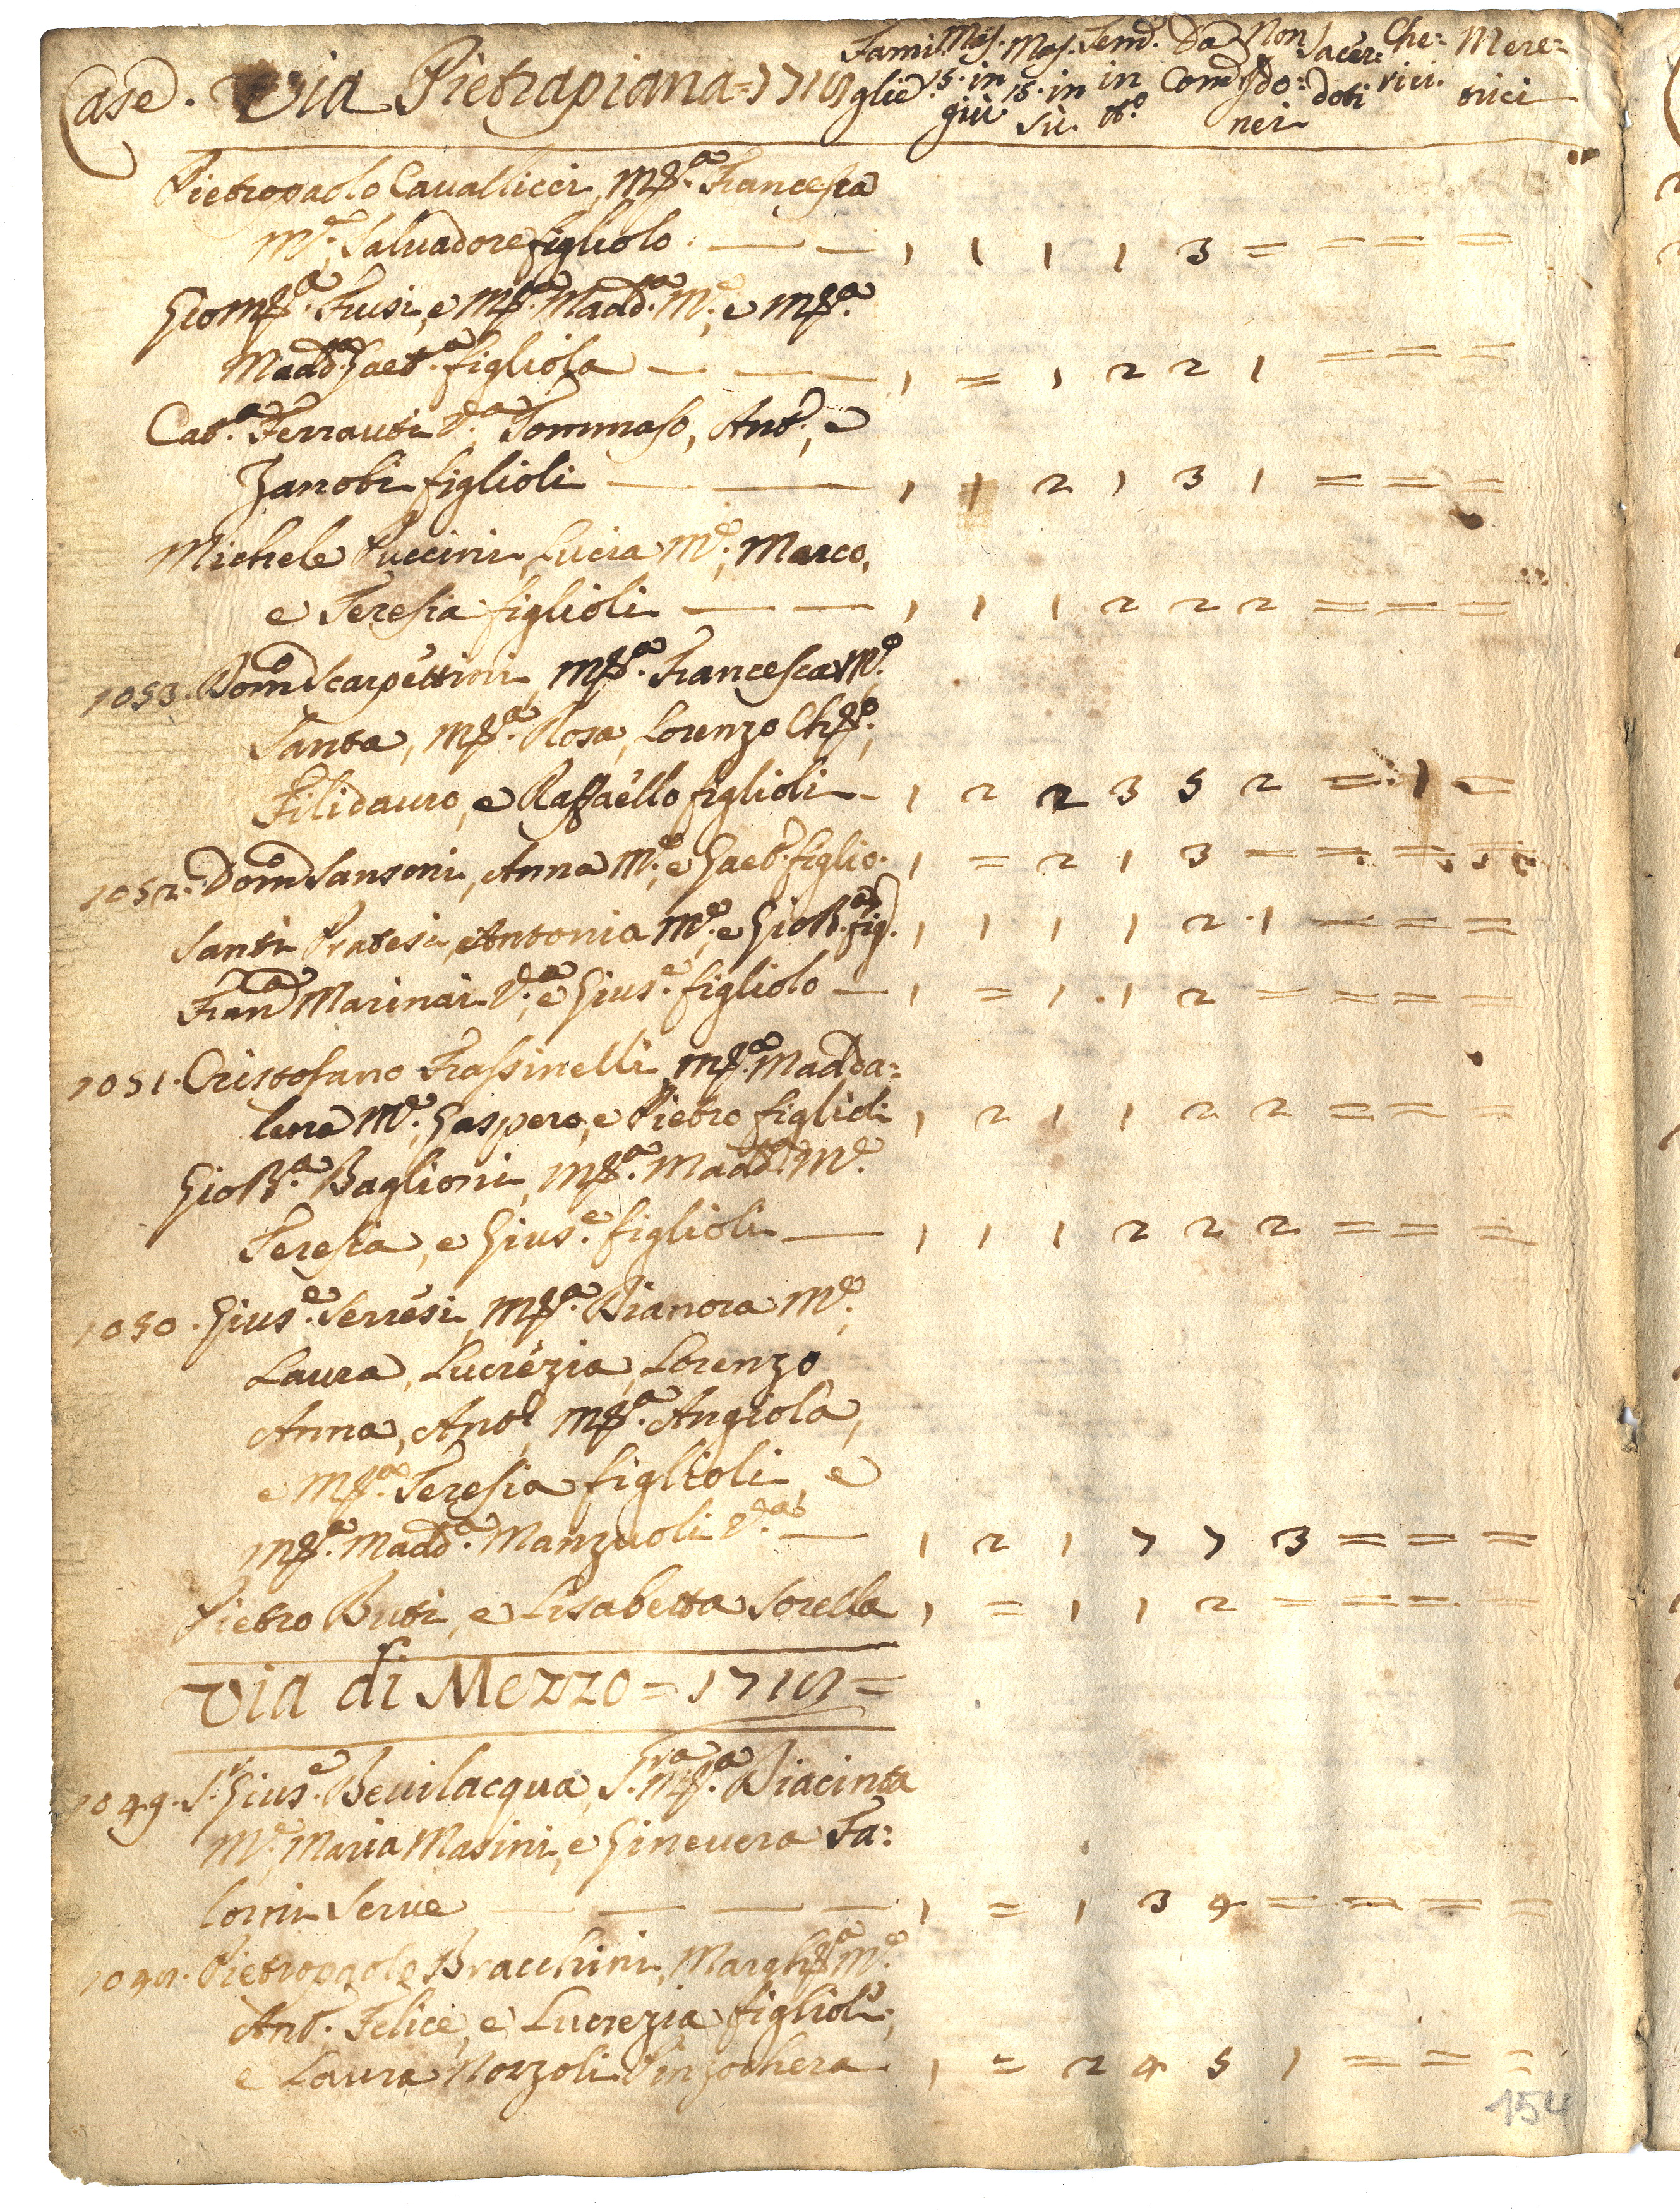 Case. Via Pietrapiana = 1718 Fami: glie Mas. 15. in giù. Mas. 15. in sù. Fem. in tt.o Da Com. Non ido: nei Sacer: doti Che: rici. Mere: trici
Pietropaolo Cavallicci, M.ª Francesca
M.e, Salvadore figliolo. — — 1 1 1 1 3 = = = =
Gio M.ª Fusi, e M.ª Madd.ª M.e, e M.ª
Madd.ª Gaet.ª figliola — — — 1 = 1 2 2 1 = = =
Cat.ª Ferrauti V.ª, Tommaso, Ant.o, e
Zanobi figlioli — — 1 1 2 1 3 1 = = =
Michele Puccini, Lucia M.e, Marco,
e Teresia figlioli — — 1 1 1 2 2 2 = = =
1053. Dom.o Scarpettini, M.ª Francesca M.e
Santa, M.ª Rosa, Lorenzo Ch.o,
Filidauro, e Raffaello figlioli - 1 2 2 3 5 2 = 1 =
1052. Dom.o Sansoni, Anna M.e, e Gaet.o figlio. 1 = 2 1 3 = = = =
Santi Pratesi, Antonia M.e, e Gio B.ª fig. 1 1 1 1 2 1 = = =
Fran.ª Marinai V.ª, e Gius.e figliolo — 1 = 1 . 1 2 = = = =
1051. Cristofano Frassinelli, M.ª Madda:
lena M.e, Gaspero, e Pietro figlioli 1 2 1 1 2 2 = = =
Gio B.ª Baglioni, M.ª Madd.ª M.e
Teresia, e Gius.e figlioli — 1 1 1 2 2 2 = = =
1050. Gius.e Serresi, M.ª Dianora M.e,
Laura, Lucrezia, Lorenzo
Anna, Ant.o, M.ª Angiola,
e M.ª Teresia figlioli, e
M.ª Madd.ª Manzuoli V.ª — 1 2 1 7 7 3 = = =
Pietro Buti, e Lisabetta Sorella 1 = 1 1 2 = = = =
Via di Mezzo = 1718 =
1049. S.r Gius.e Bevilacqua, S.ra M.ª Diacinta
M.e, Maria Masini, e Ginevera Fa:
lorni Serve — — — — 1 = 1 3 4 = = = =
1048. Pietropaolo Bracchini, Margh.ª M.e
Ant.o Felice, e Lucrezia figlioli,
e Laura Norzoli Pinzochera 1 = 2 4 5 1 = = =
154